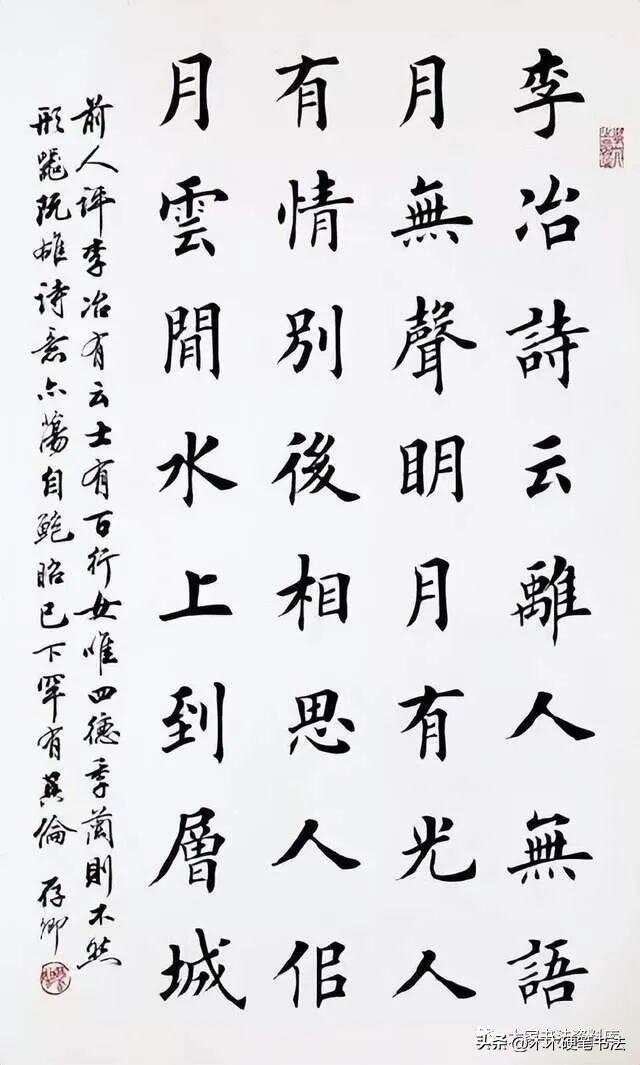 李冶詩云離人無語
月無聲明月有光人
有情別後相思人佀
月雲間水上到層城
前人評李冶有云士有百行女唯四德季蘭則不然
形既雄詩意亦蕩自鮑昭已下罕有其倫 存卿
头条@木木硬笔书法